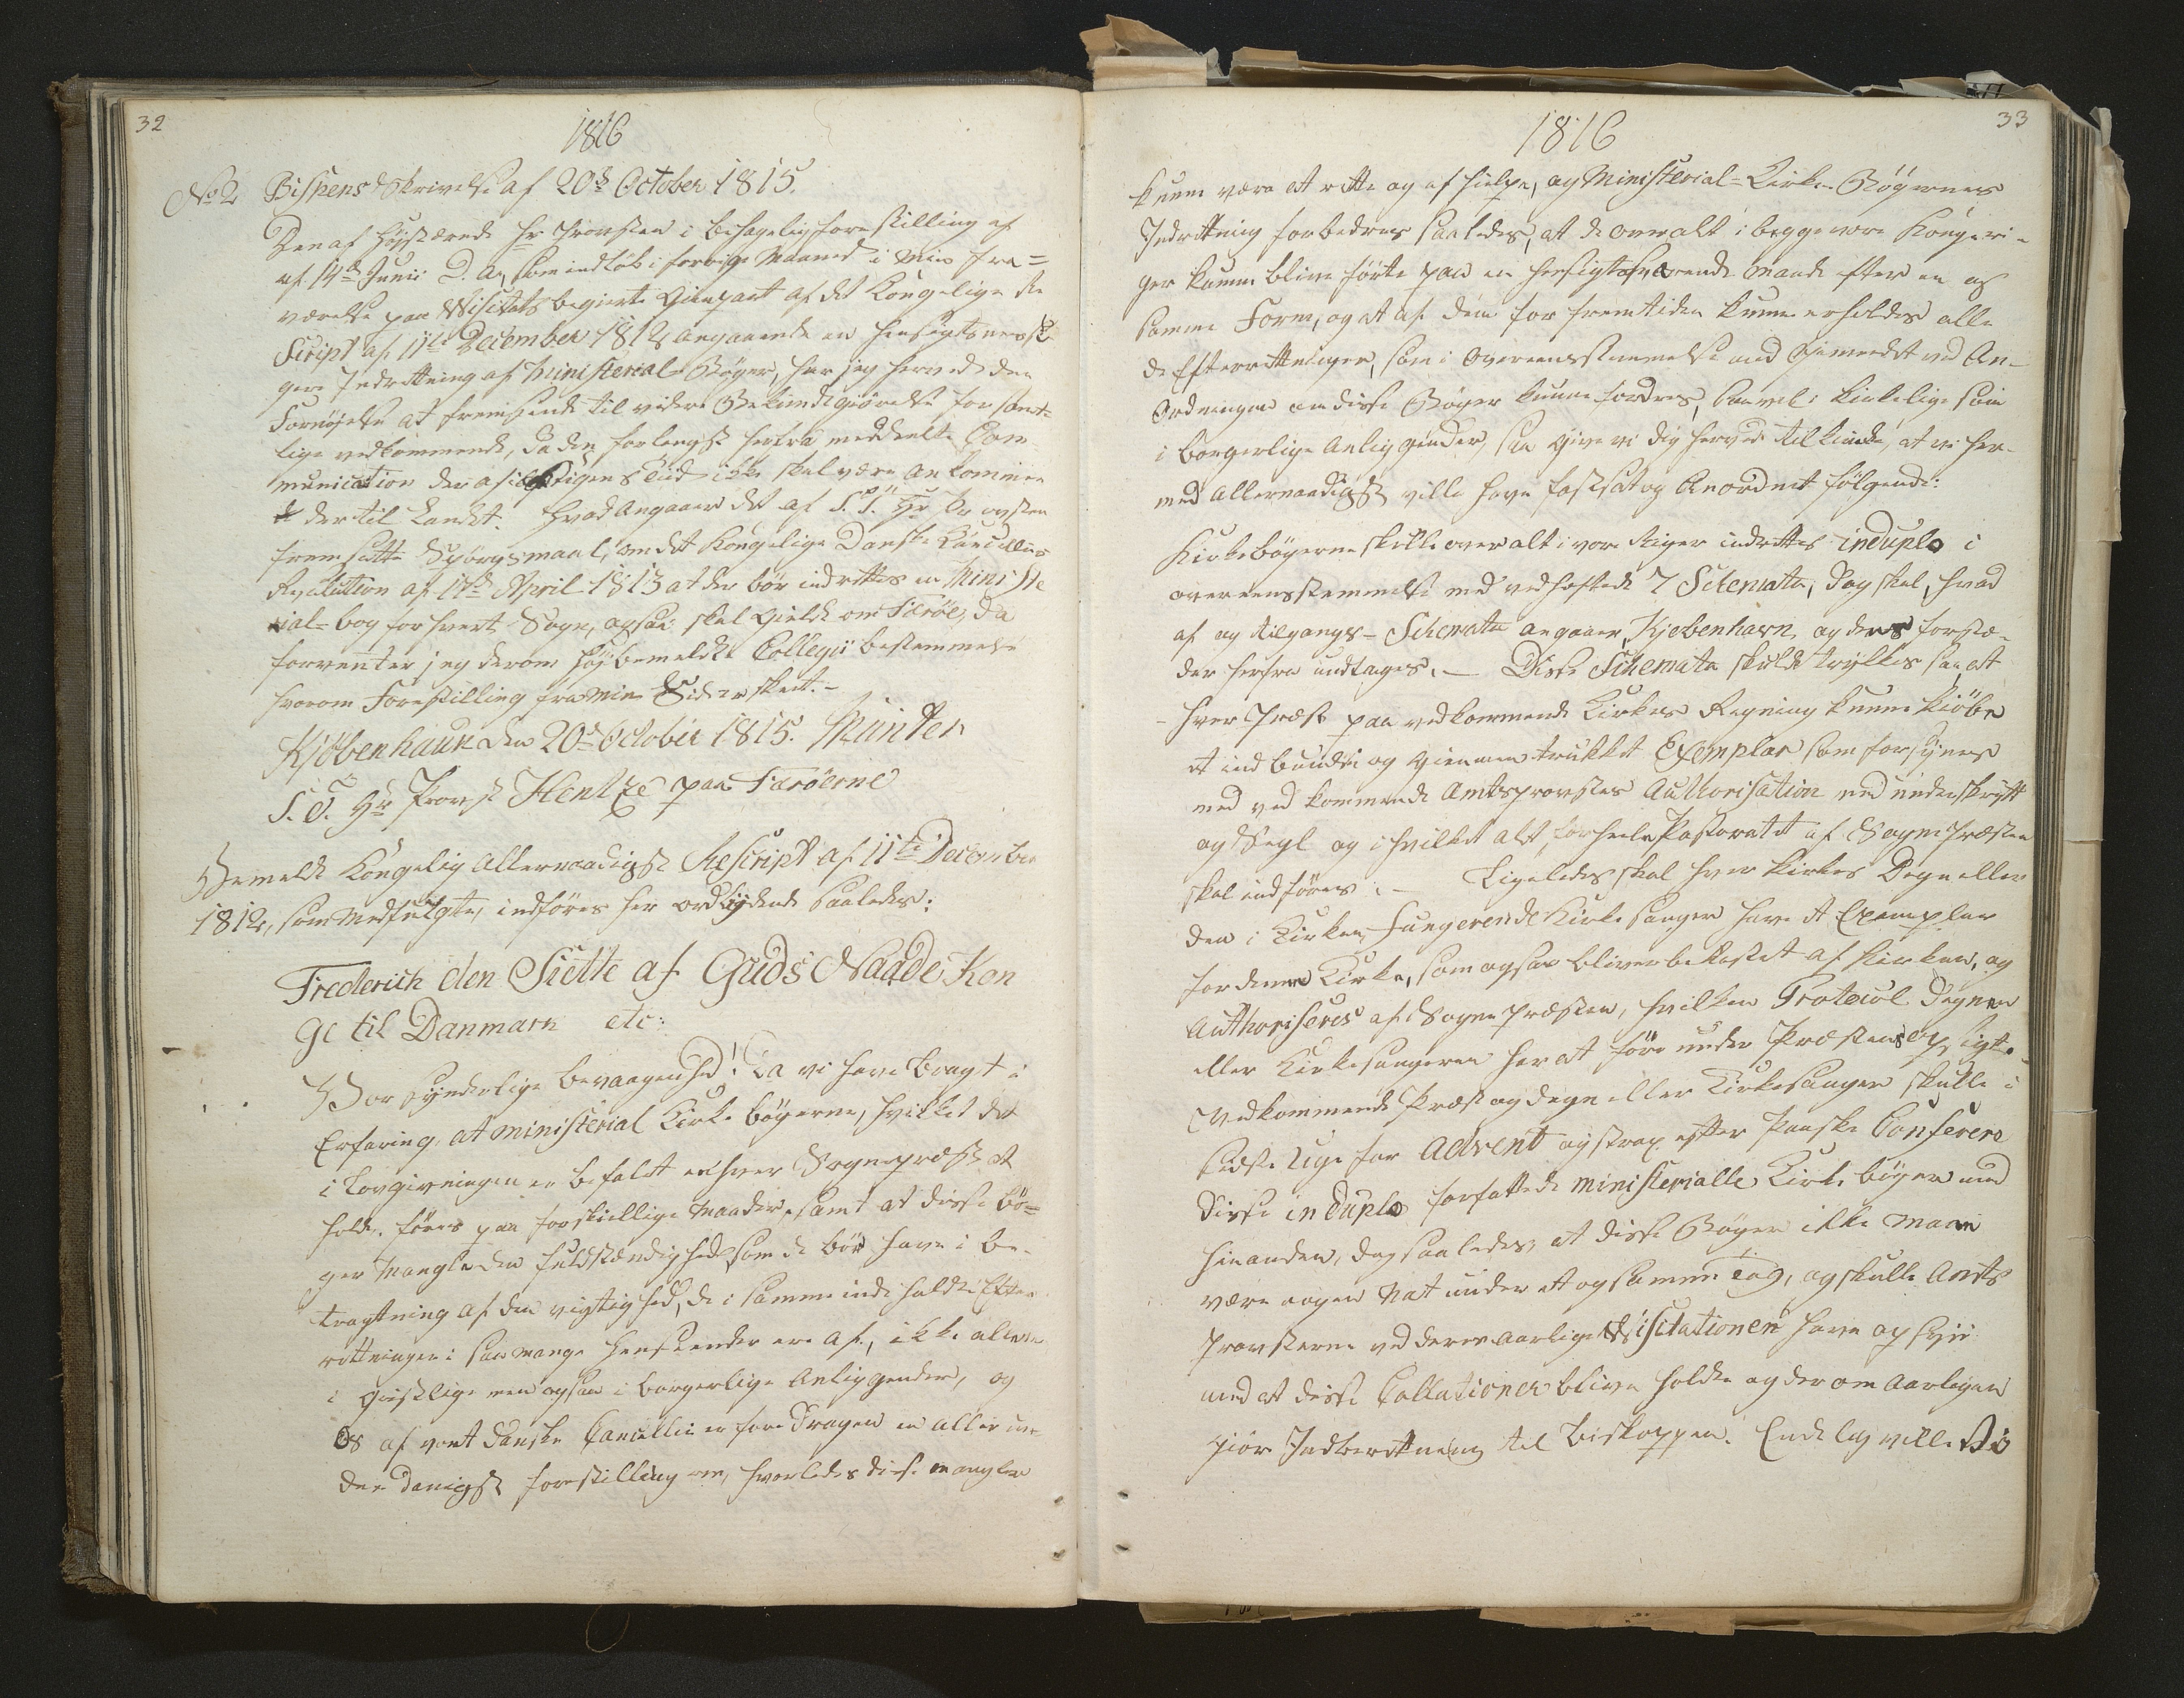 32
1816
No 2 Bispens Skrivelse af 20de October 1815.
Den af Højstærede Hr Provsten i behagelig forestilling af
af 14de Junii D. A, som indløb i forrige Maaned i Min fra=
værelse paa Visitats begierte Gienpart af det Kongelige Re
script af 11te December 1812 angaaende en hensigtsmæssi
gere Indretning af Ministerial-Bøger, har jeg herved den
Fornøjelse at fremsende til videre Bekiendtgiørelse for samt=
lige vedkommende, da den forlengst herfra meddeelte Com
munication der a tiids ikke skal være ankommen
der til Landet. Hvad Angaaer det af S. T. Hr Provsten
fremsatte Spørgsmaal, om det Kongelige Danske Cancellies
Resolution af 17de April 1813 at der bør indrettes en Ministe
rial=bog for hvert Sogn, ogsaa skal gielde om Færöe, da
forventer jeg derom høj bemeldte Collegii bestemmelse
hvorom Forestilling fra min Side er skeet.-
Kjøbenhaun den 20de October 1815. Münter
S. T. Hr Provst Hentze paa Færöerne
Bemelte Kongelig Allernaadigst Rescript af 11te Decembr
1812, som medfulgte, indføres her ordlydende saaledes:
Frederich den Siette af Guds Naade Kon
ge til Danmark etc:
Vor synderlige bevaagenhed! Da vi have bragt i
Erfaring, at ministerial Kirke bøgerne, hvilket det
i Lovgivningen er befalet enhver Sognepræst at
holde, føres paa forskiellige Maader, samt at disse bø=
ger Mangle den fuldstændighed som de bør have i Be-
tragtning af den vigtighed, de i samme indeholdte Efter
rettninger i saa mange Henseender ere af, ikke alene
i geistlige men ogsaa i borgerlige Anliggender, og
Os af vort danske Cancellie er foredragen en allerun
derdanigst forestilling om, hvorledes disse mangler
33
1816
kunne være at rette og afhielpe, og Ministerial=Kirke-Bøgernes
Indretning forbedres saaledes, at de overalt i begge vore Kongeri-
ger kunne blive førte paa en hensigtsvarende maade efter en og
samme Form, og at af dem for fremtiden kunne erholdes alle
de Efterretninger, som i Overeensstemmelse med Øiemedet ved An-
Ordningen om disse Bøger kunne fordres, saavel i kirkelige som
i borgerlige Anliggender, saa give vi dig herved tilkiende, at vi her-
med Allernaadigst ville have fastsat og Anordnet følgende:
Kirkebøgerne skulle overalt i vore Riger indrettes induplo i
overeensstemmelse med vedheftede 7 Schemata, dog skal, hvad
af og tilgangs- Schemata angaaer, Kjøbenhavn, og dens forstæ-
der herfra undtages. - Disse Schemata skulde trykkes saa at
hver Præst paa vedkommende Kirkes Regning kunne kiøbe
et indbunden og giennemtrukket Exemplar som forsynes
med vedkommende Amtsprovstes Authorisation med underskrift
og Segl og i hvilket alt, for heele Pastoratet af Sognepræsten
skal indføres. - Ligeledes skal hver kirkes Degn eller
den i Kirken fungerende Kirkesanger have et Exemplar
for denne Kirke, som ogsaa bliver bekostet af Kirken, og
Authoriseres af Sognepræsten, hvilken Protocol degnen
eller Kirkesangeren har at føre under Præstens opsigt.
Vedkommende Præst og degn eller Kirkesanger skulle i
sidste Uge for Advent og strax efter Paaske Conferere
disse induplo forfattede ministerialle Kirkebøger med
hinanden, dog saaledes, at disse Bøger ikke maae
være nogen Nat under et og samme Tag, og skulle Amts
provsterne ved deres aarlige Visitationen have opsyn
med at disse Collationer blive holdte og derom aarligen
giøre Indberetning til Biskoppen. Endelig ville Vi